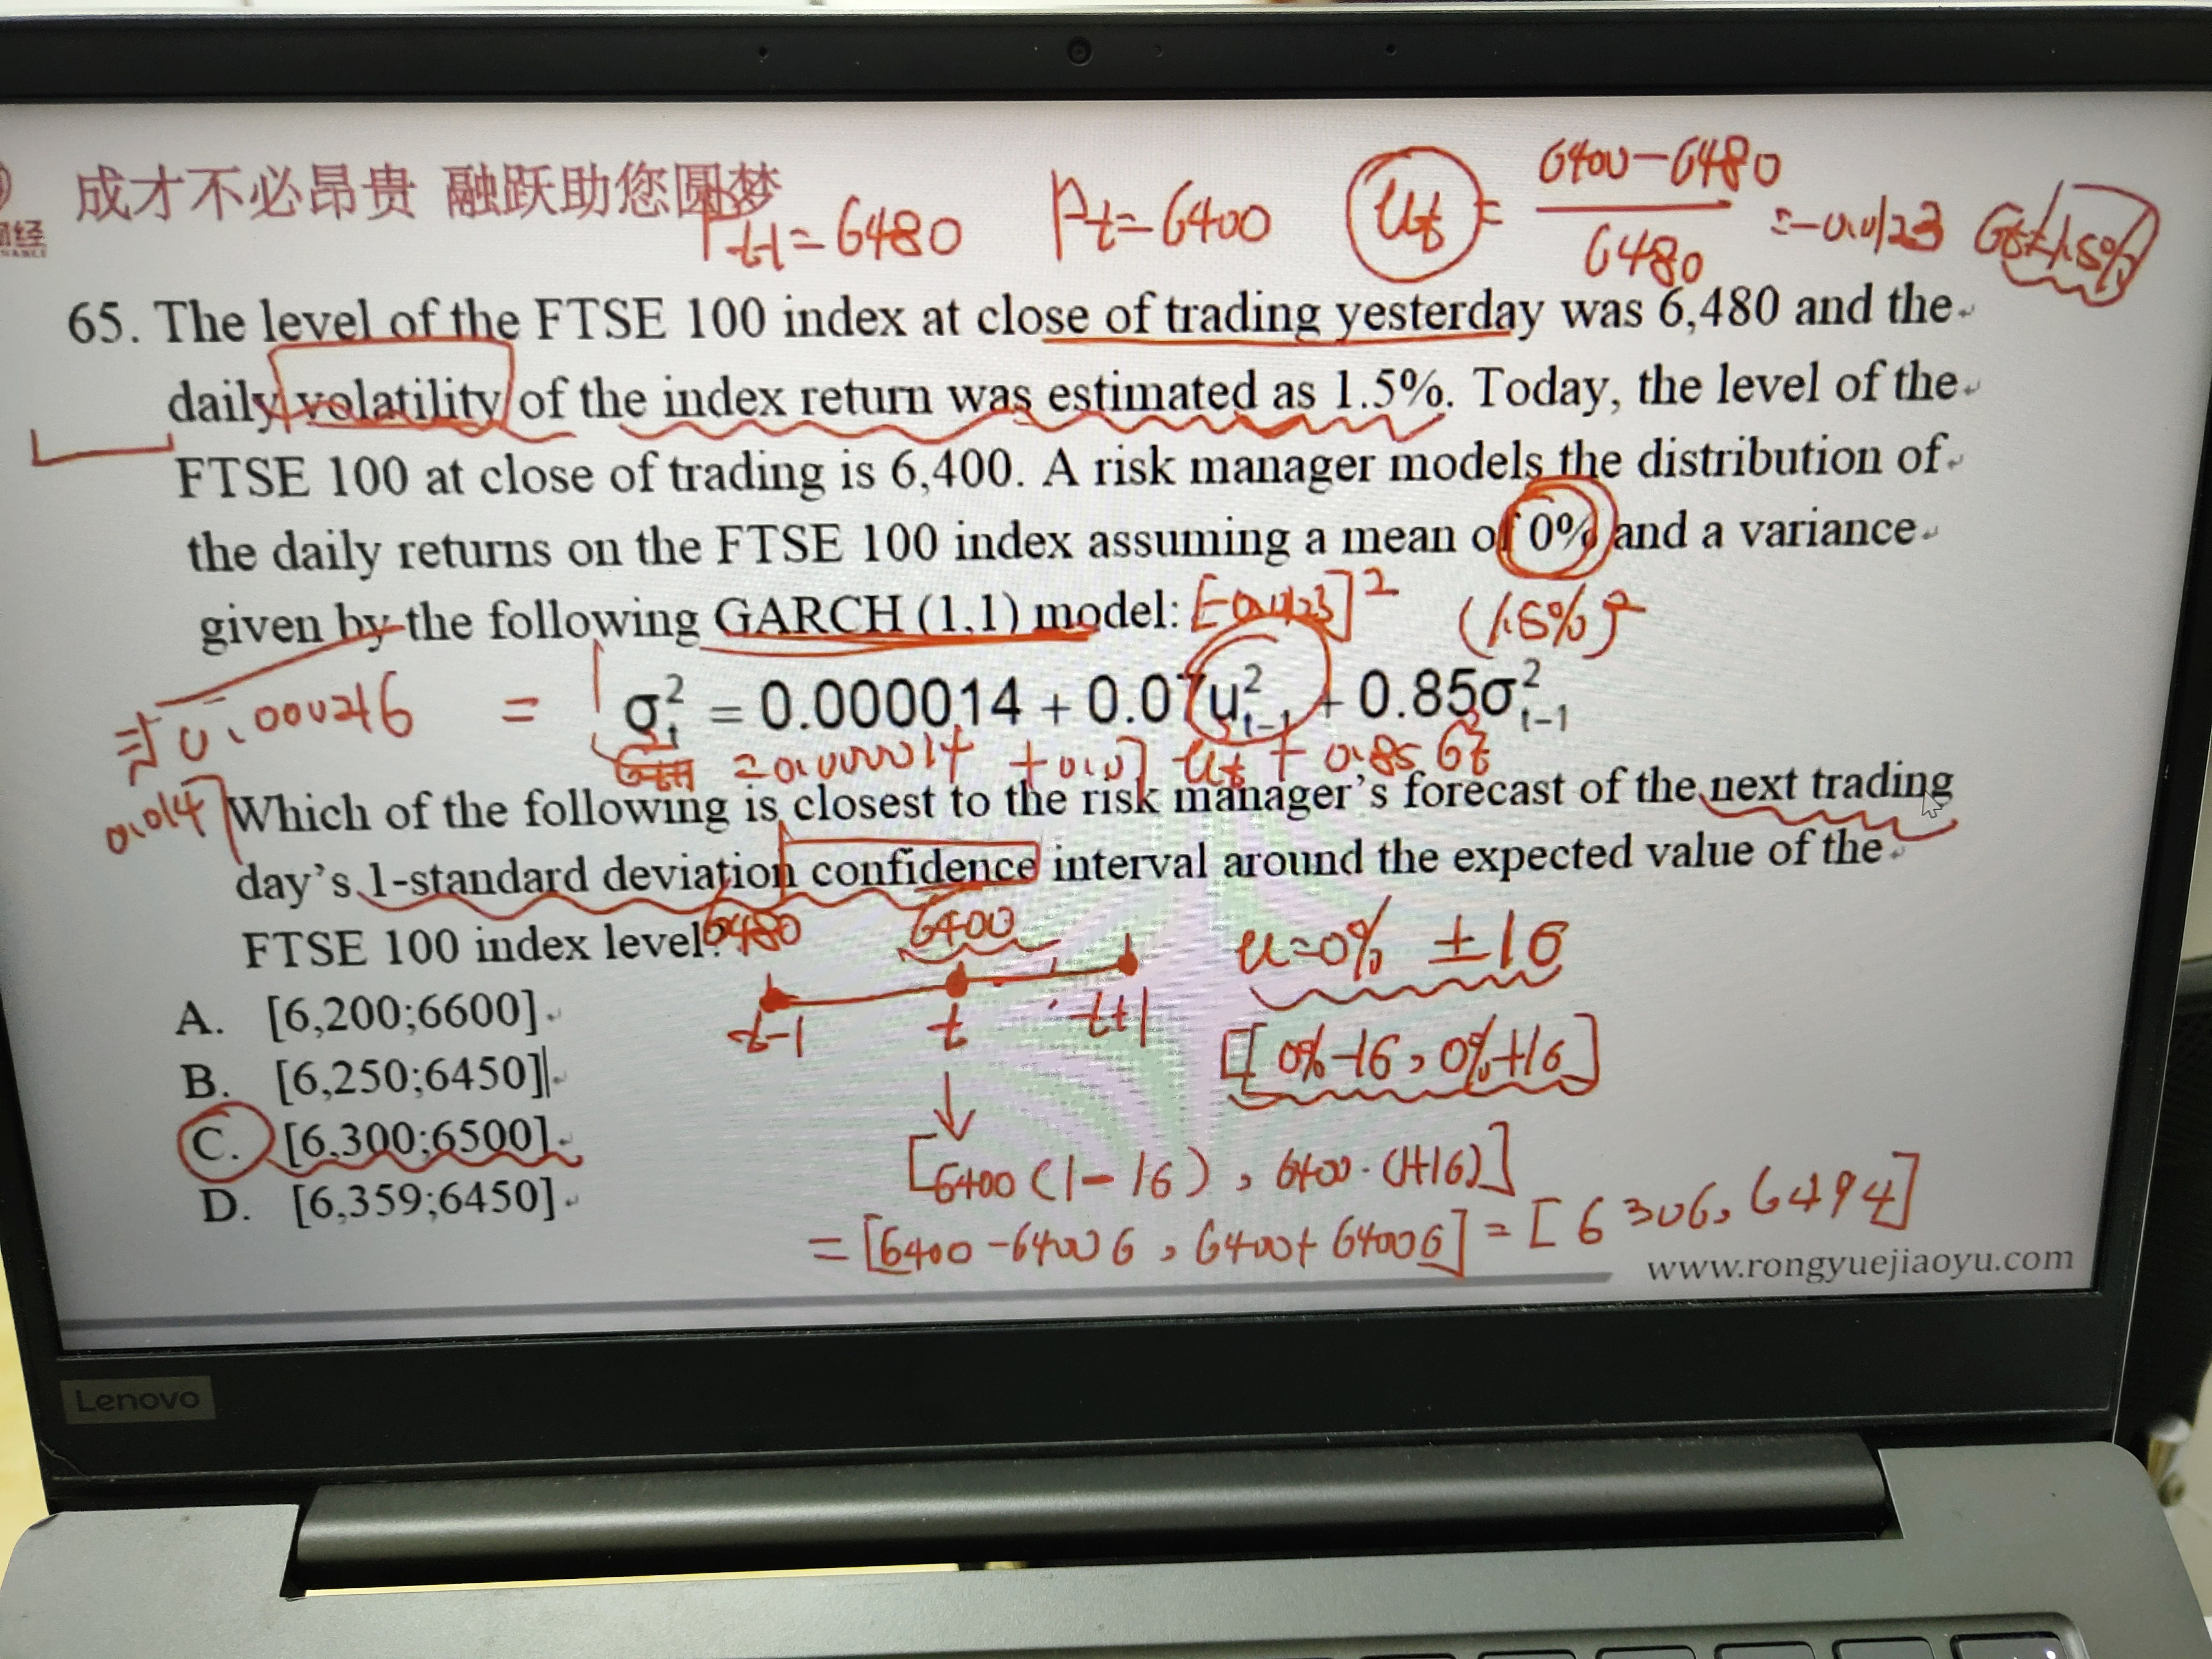 成才不必昂贵 融跃助您圆梦
P t-1 = 6480 Pt = 6400 ut = (6400-6480)/6480 = -0.0123 σt=1.5%
65. The level of the FTSE 100 index at close of trading yesterday was 6,480 and the
daily volatility of the index return was estimated as 1.5%. Today, the level of the
FTSE 100 at close of trading is 6,400. A risk manager models the distribution of
the daily returns on the FTSE 100 index assuming a mean of 0% and a variance
given by the following GARCH (1,1) model: [-0.0123]² (1.5%)²
0.000216 = σ²t = 0.000014 + 0.07u²t-1 + 0.85σ²t-1
=0.000014 + 0.07 ut + 0.85 σ²t
0.014 Which of the following is closest to the risk manager's forecast of the next trading
day's 1-standard deviation confidence interval around the expected value of the
FTSE 100 index level?
6480 6400 u=0% ±1σ
A. [6,200;6600]
t-1 t t+1
B. [6,250;6450]
[0%-1σ, 0%+1σ]
C. [6,300;6500]
[6400(1-1σ), 6400·(1+1σ)]
D. [6,359;6450]
= [6400-6400σ, 6400+6400σ] = [6306, 6494]
www.rongyuejiaoyu.com
Lenovo